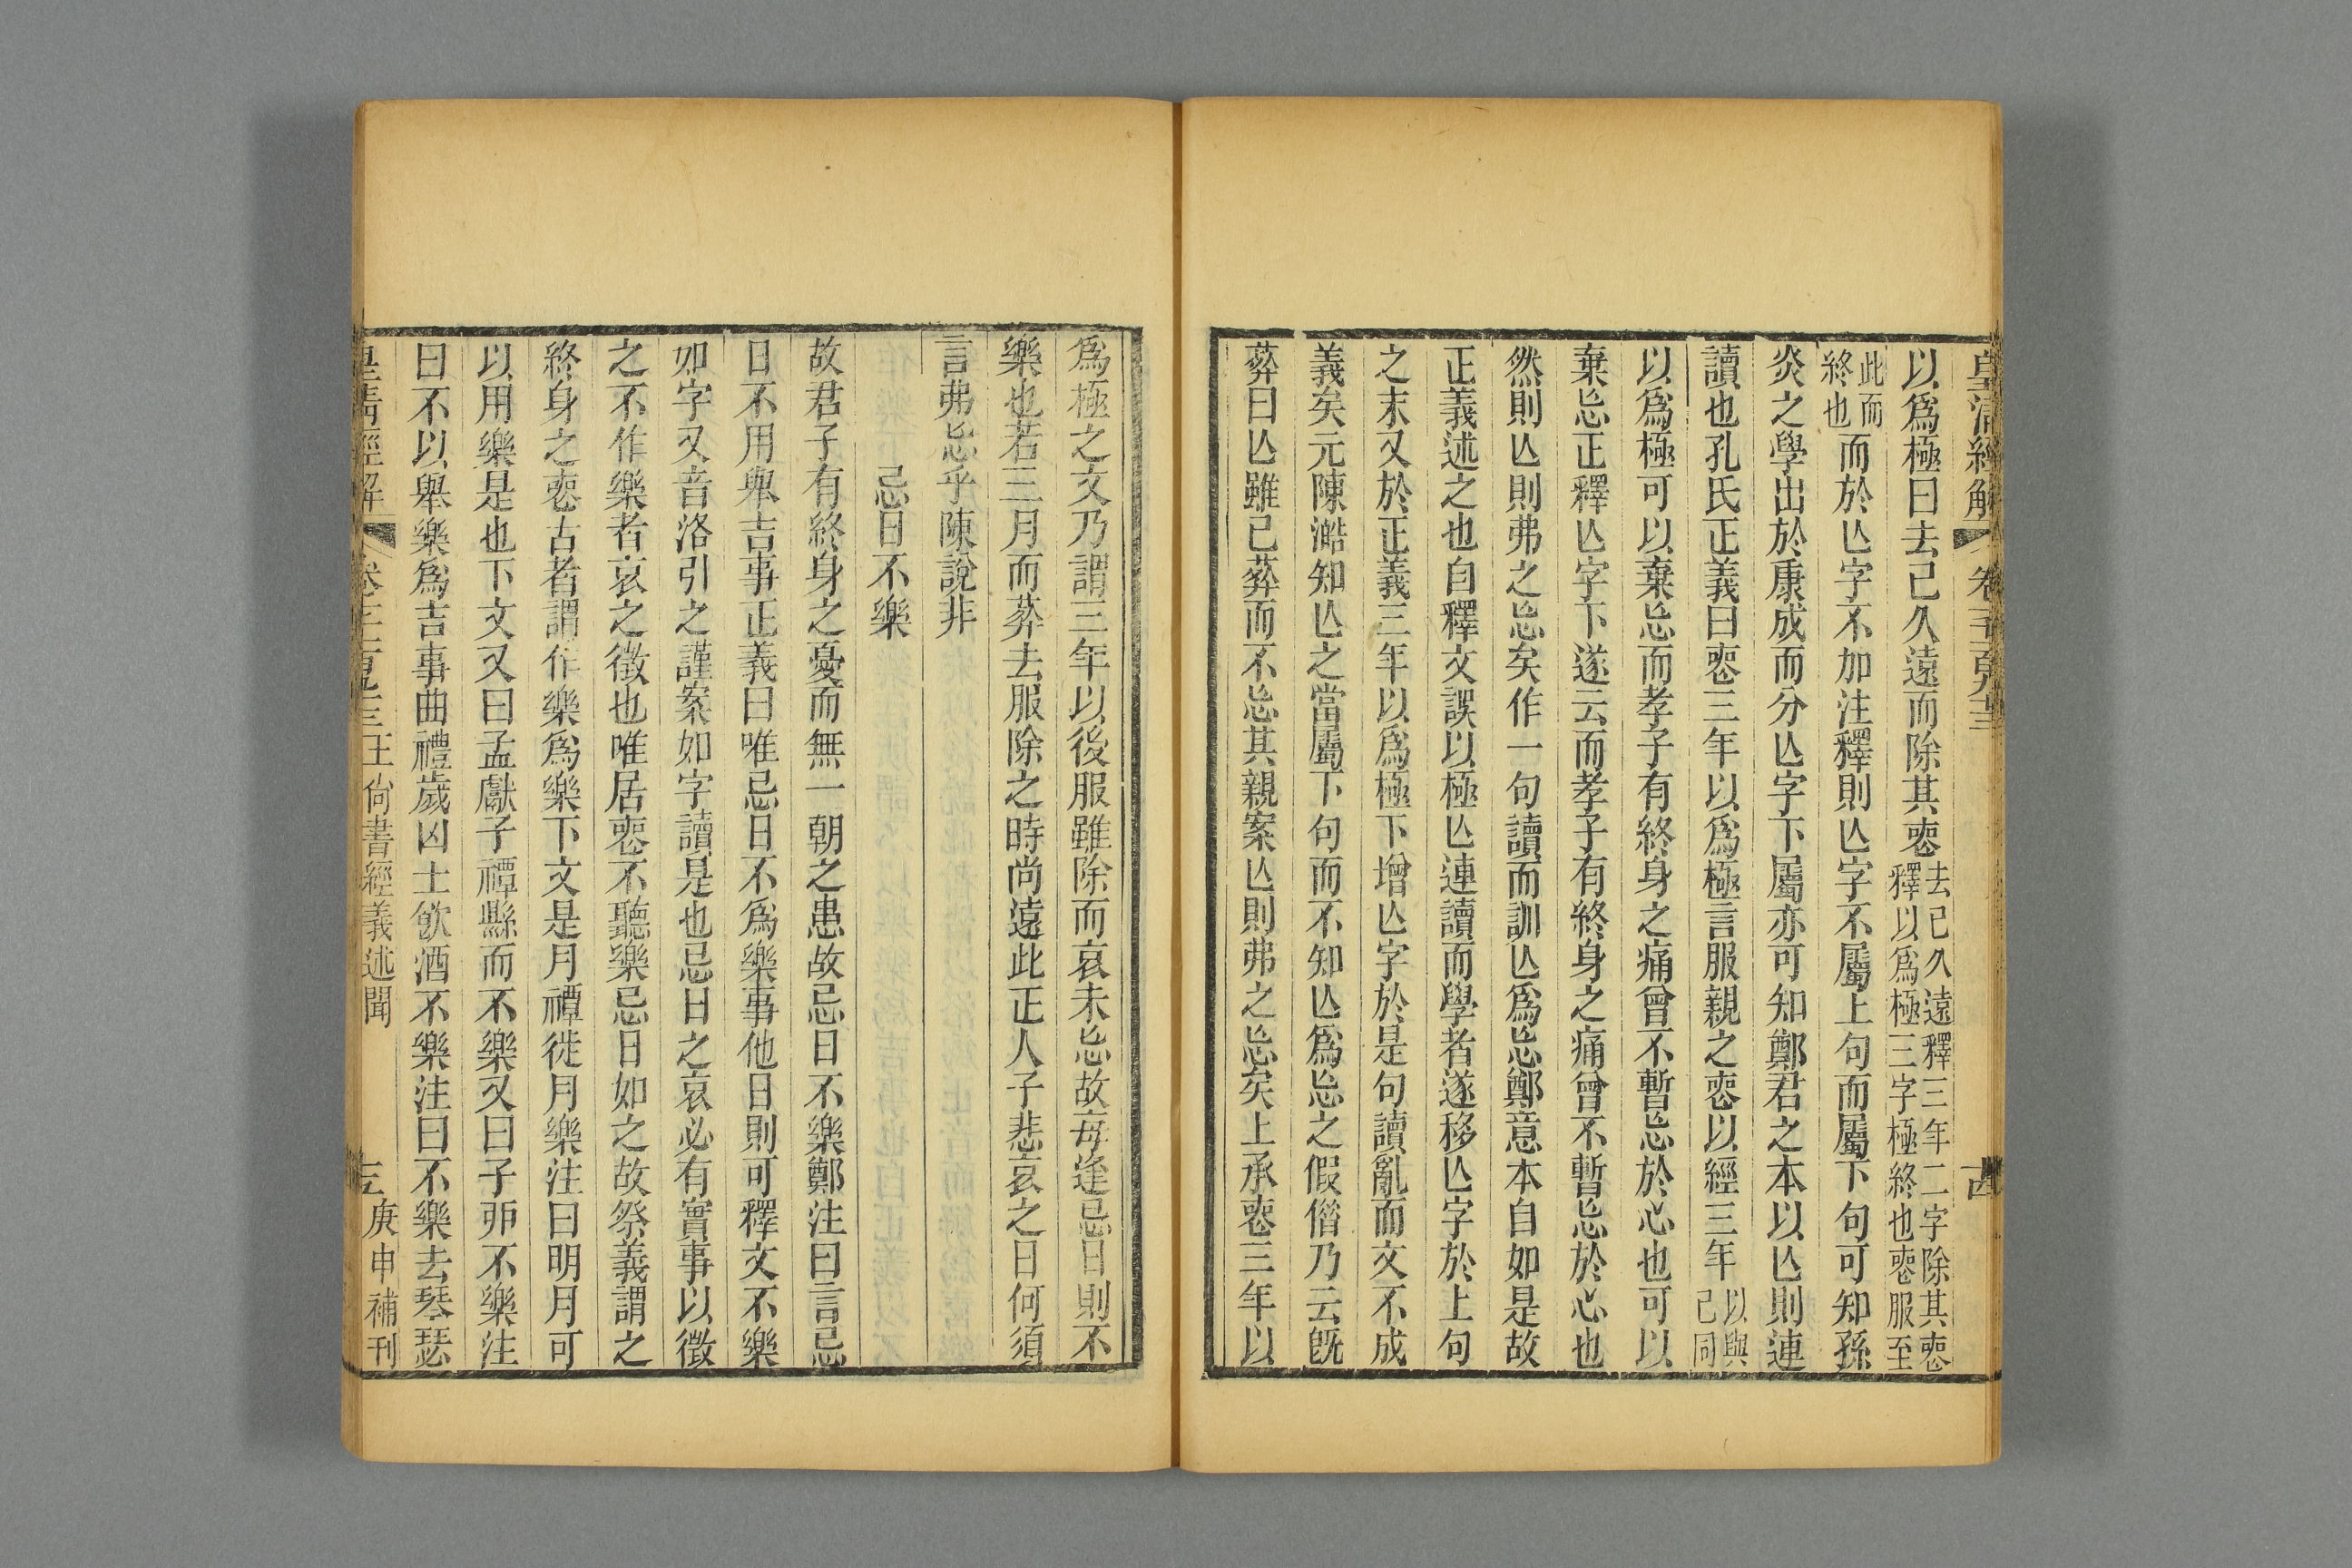 皇清經解 卷千一百九十三 十四
以爲極曰去已久遠而除其喪去已久遠釋三年二字除其喪釋以爲極三字極終也喪服至
此而終也而於亾字不加注釋則亾字不屬上句而屬下句可知孫
炎之學出於康成而分亾字下屬亦可知鄭君之本以亾則連
讀也孔氏正義曰喪三年以爲極言服親之喪以經三年以與已同
以爲極可以棄忘而孝子有終身之痛曾不暫忘於心也可以
棄忘正釋亾字下遂云而孝子有終身之痛曾不暫忘於心也
然則亾則弗之忘矣作一句讀而訓亾爲忘鄭意本自如是故
正義述之也自釋文誤以極亾連讀而學者遂移亾字於上句
之末又於正義三年以爲極下增亾字於是句讀亂而文不成
義矣元陳澔知亾之當屬下句而不知亾爲忘之假借乃云旣
葬曰亾雖已葬而不忘其親案亾則弗之忘矣上承喪三年以
爲極之文乃謂三年以後服雖除而哀未忘故每逢忌日則不
樂也若三月而葬去服除之時尚遠此正人子悲哀之日何須
言弗忘乎陳說非
忌日不樂
故君子有終身之憂而無一朝之患故忌日不樂鄭注曰言忌
日不用舉吉事正義曰唯忌日不爲樂事他日則可釋文不樂
如字又音洛引之謹案如字讀是也忌日之哀必有實事以徵
之不作樂者哀之徵也唯居喪不聽樂忌日如之故祭義謂之
終身之喪古者謂作樂爲樂下文是月禫徙月樂注曰明月可
以用樂是也下文又曰孟獻子禫縣而不樂又曰子卯不樂注
曰不以舉樂爲吉事曲禮歲凶士飮酒不樂注曰不樂去琴瑟
皇清經解 王尙書經義述聞 庚申補刊